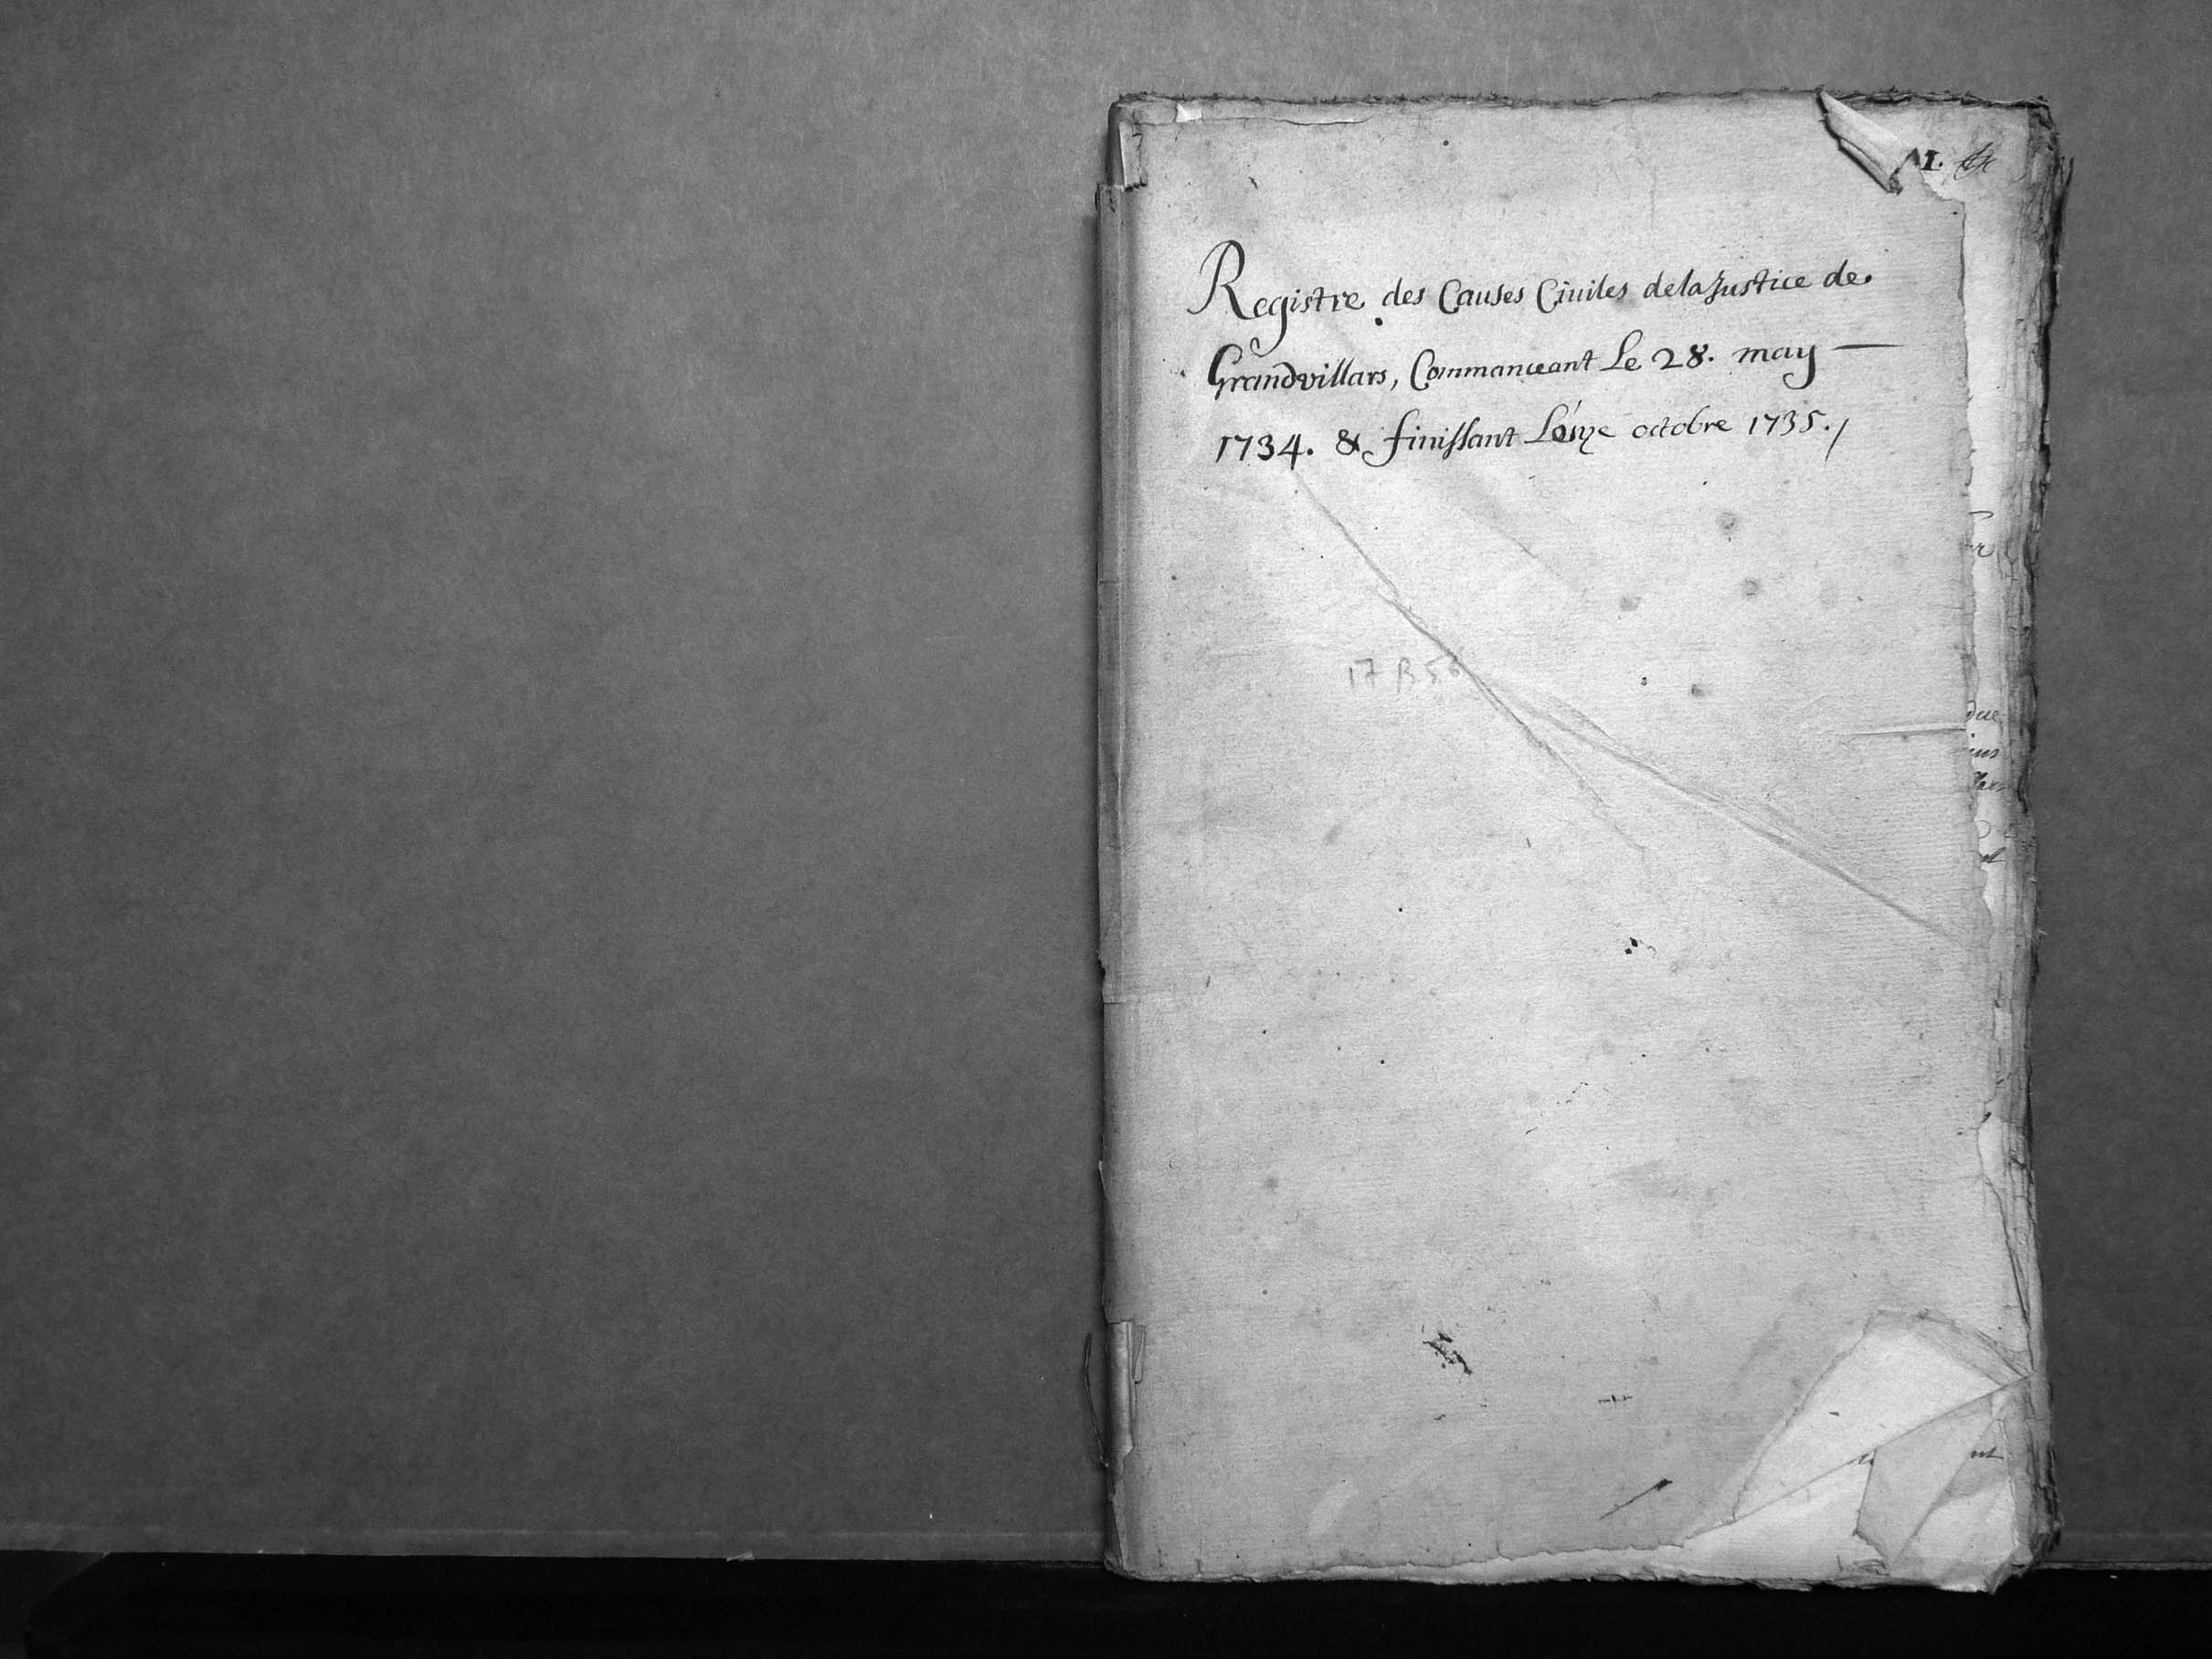 1.
Registre des Causes Civiles dela Justice de
Grandvillars, Commanceant Le 28. may —
1734. & finissant octobre 1735./
17 B 5
due
ins